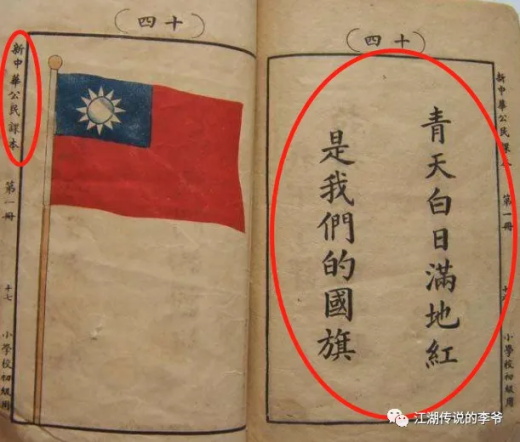 （十四）
新中華公民課 第一冊 小學校初級用
青天白日滿地紅
是我們的國旗
（十四）
新中華公民課本 第一冊 十七 小學校初級用
江湖传说的李爷